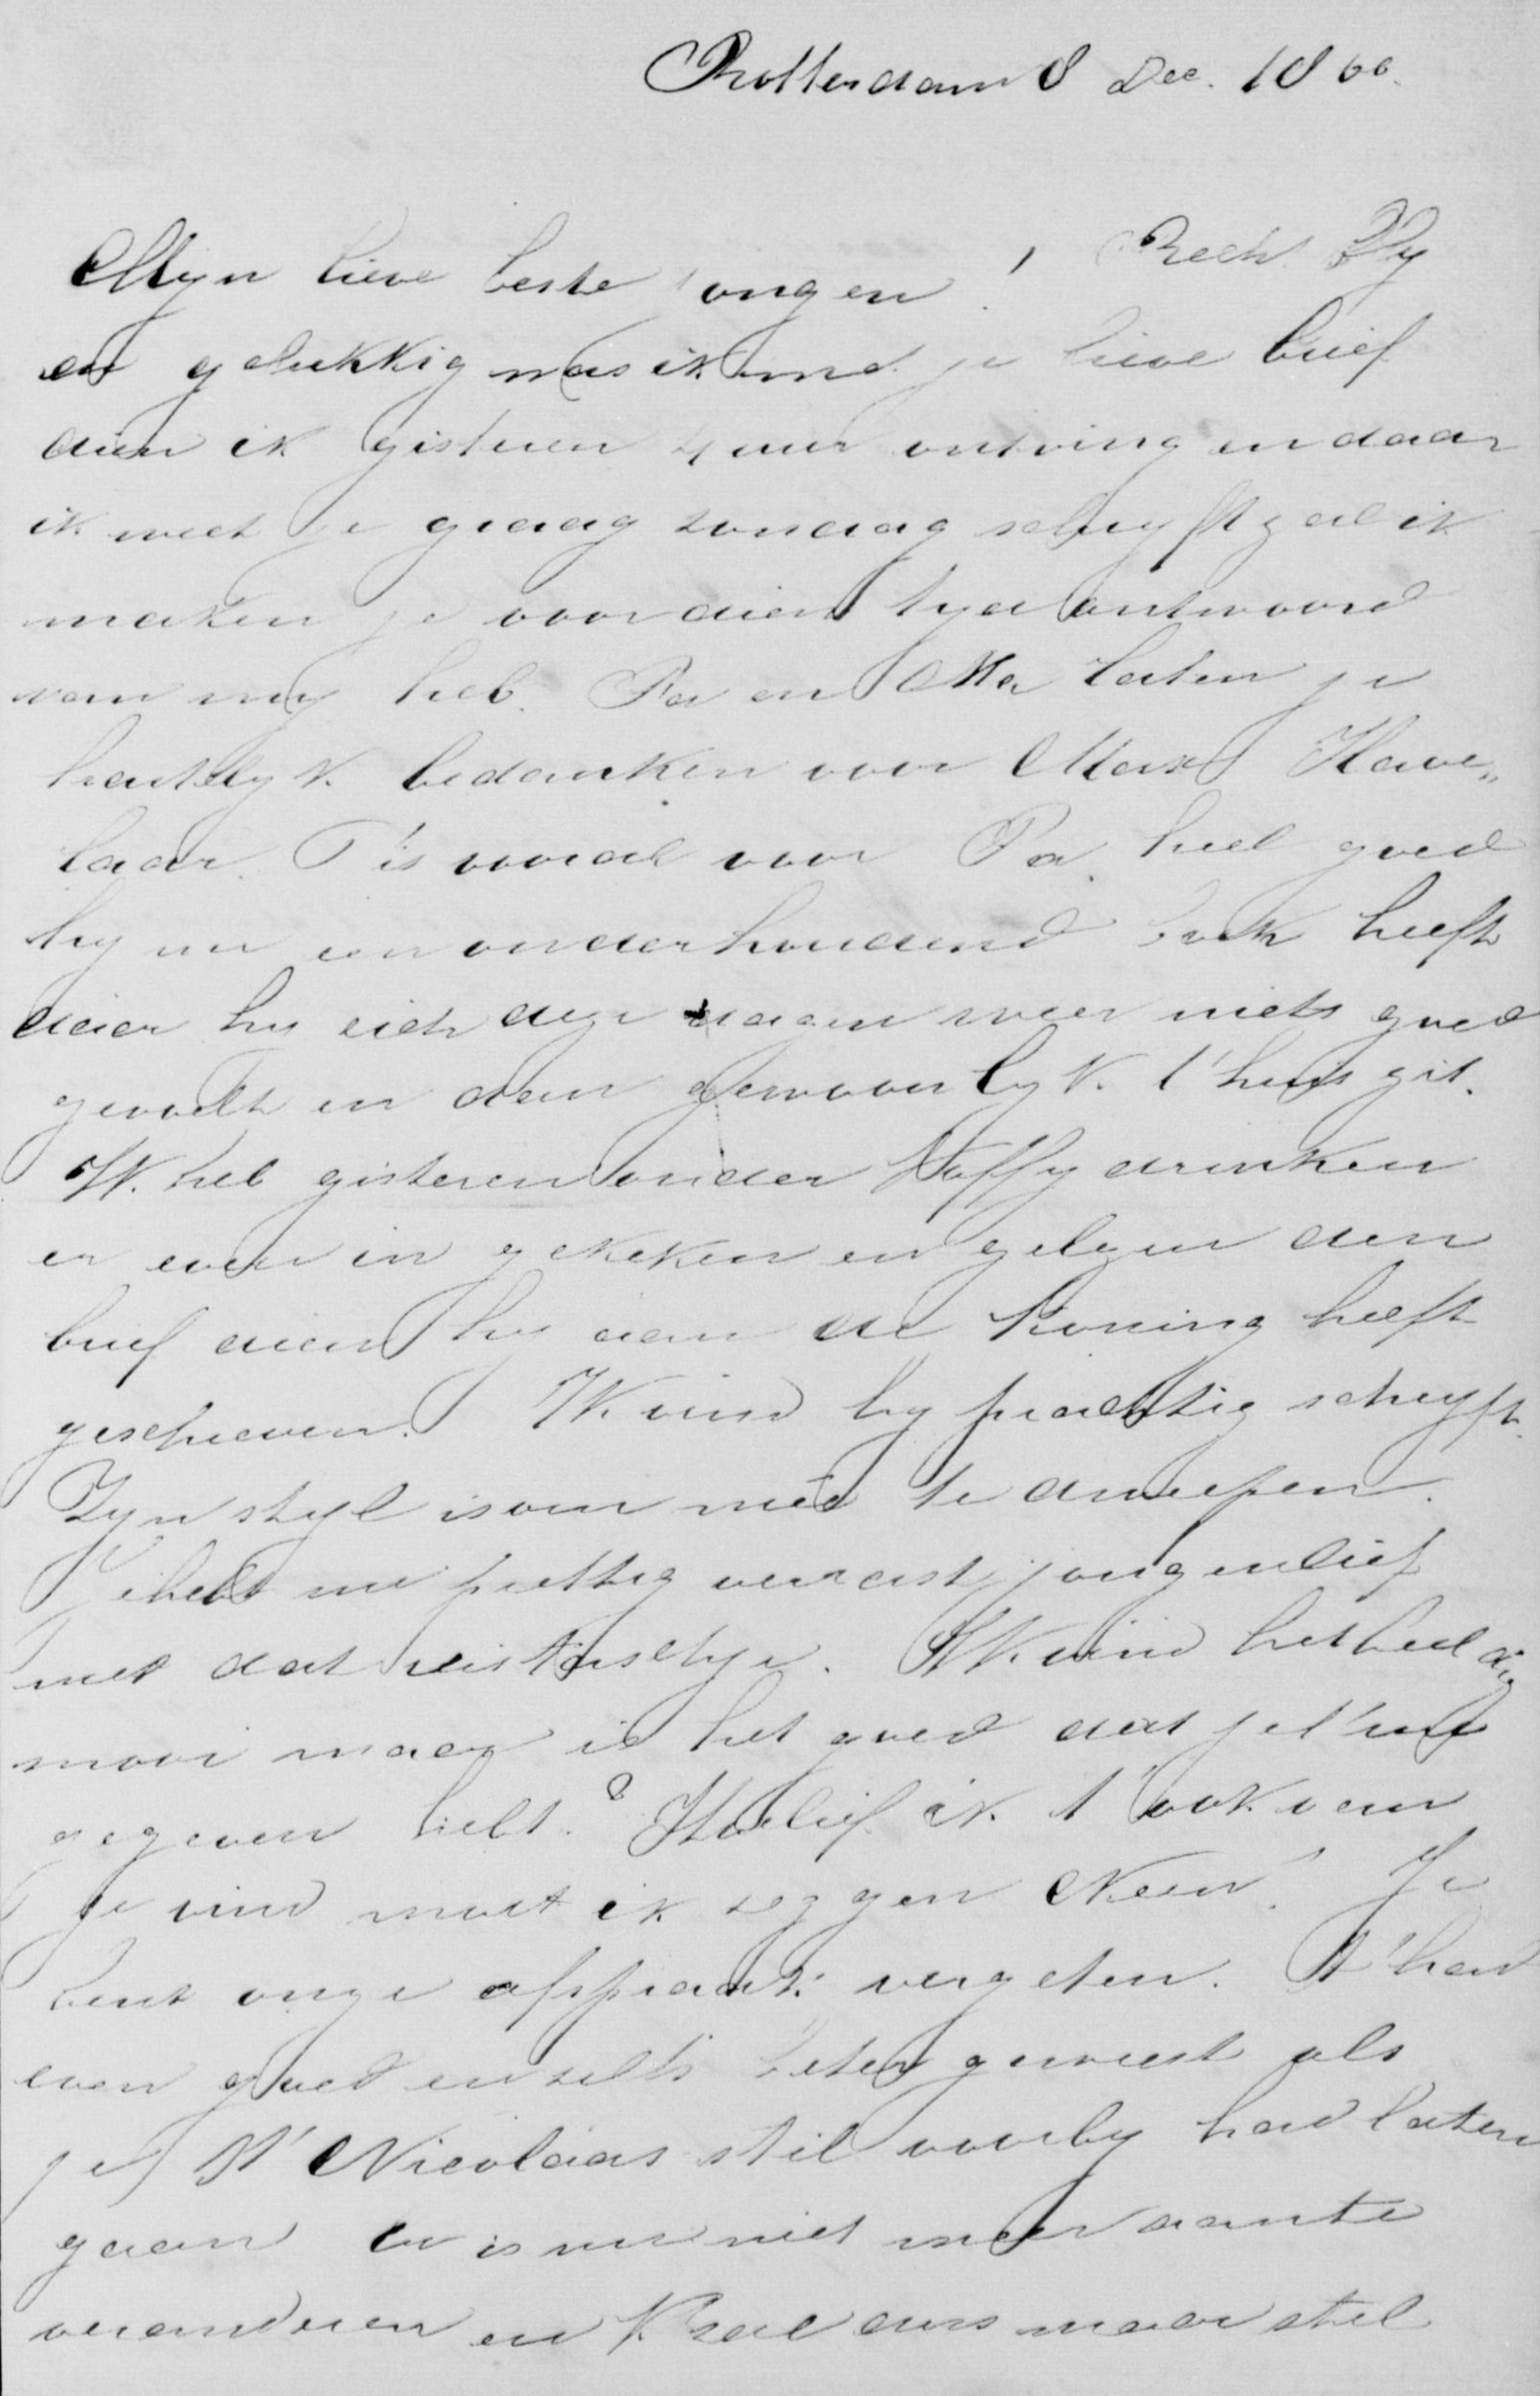 Rotterdam 8 Dec. 1866.
Mijn lieve beste jongen! Recht bly
en gelukkig was ik met je lieve brief
dien ik gisteren 4 uur ontving en daar
ik weet je graag zondag schryft zal ik
maken je voor dien tyd antwoord
van my heb. Pa en Ma laten je
hartelyk bedanken voor Max Have„
laar. T'is vooral voor Pa heel goed
hy nu een onderhoudend boek heeft
daar hy zich deze dagen weer niets goed
gevoelt en dan gewoonlyk t'huis zit.
Ik heb gisteren onder koffydrinken
er even in gekeken en gelezen den
brief dien hy aan de Koning heeft
geschreven. Ik vind hy prachtig schryft.
Zyn styl is om mee te dweepen.
Je hebt me prettig verrast jongenlief
met dat reistaschje. Ik vind het heel
mooi maar is het goed dat je t'me
gegeven hebt? Hoe lief ik t'ook van
je vind moet ik zeggen Neen! Je
bent onze afspraak vergeten. T'had
even goed en zelfs beter geweest als
je St Nicolaas stil voorby had laten
gaan er is nu niet meer aan te
veranderen en k'zal dus maar stil